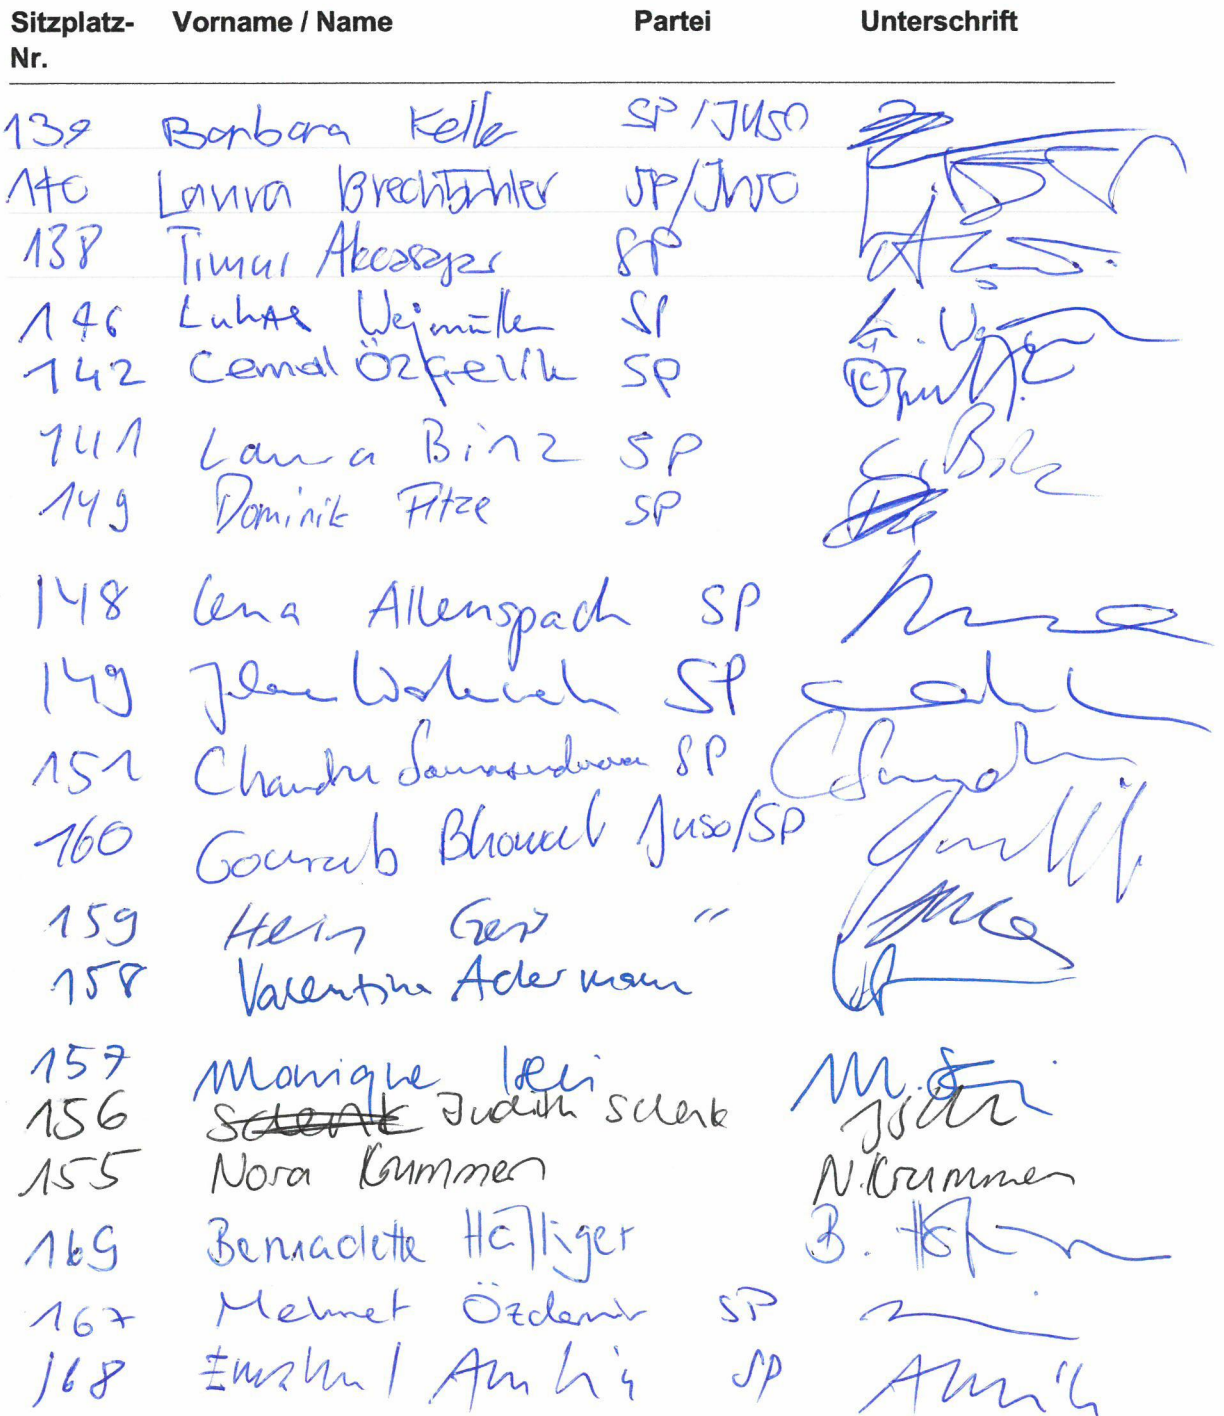 Sitzplatz-Nr. Vorname / Name Partei Unterschrift
139 Barbara Keller SP / JUSO
140 Laura Brechbühler SP/JUSO
138 Timur Akcasayar SP
146 Lukas Wegmüller SP L.
142 Cemal Özçelik SP
141 Laura Binz SP L. Binz
149 Dominik Fitze SP
148 Lena Allenspach SP
149 SP
151 Chandru Somasundaram SP
160 Gourab Bhowal Juso/SP
159 "
158 Valentina Achermann
157 Monique Iseli M.
156 Judith Schenk
155 Nora Krummen N. Krummen
169 Bernadette Häfliger B.
167 Mehmet Özdemir SP
168 Emanuel Amrhein SP